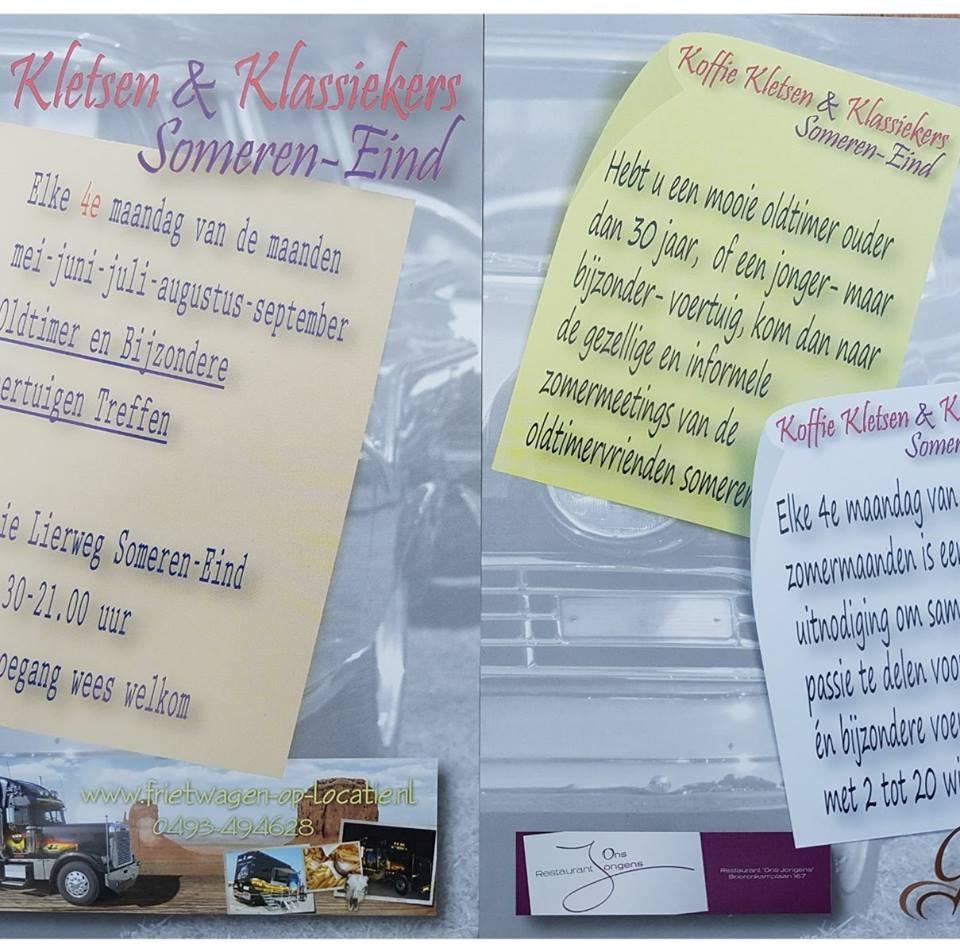 Kletsen & Klassiekers
Someren-Eind
Elke 4e maandag van de maanden
mei-juni-juli-augustus-september
Oldtimer en Bijzondere
Treffen
Lierweg Someren-Eind
30-21.00 uur
wees welkom
www.frietwagen-op-locatie.nl
0493-494628
Koffie Kletsen & Klassiekers
Someren-Eind
Hebt u een mooie oldtimer ouder
dan 30 jaar, of een jonger- maar
bijzonder- voertuig, kom dan naar
de gezellige en informele
zomermeetings van de
oldtimervrienden someren
Koffie Kletsen & K
Somer
Elke 4e maandag van
zomermaanden is een
uitnodiging om sam
passie te delen voor
én bijzondere voer
met 2 tot 20 wi
Restaurant Ons Jongens
Restaurant "Ons Jongens"
Boerenkamplaan 167